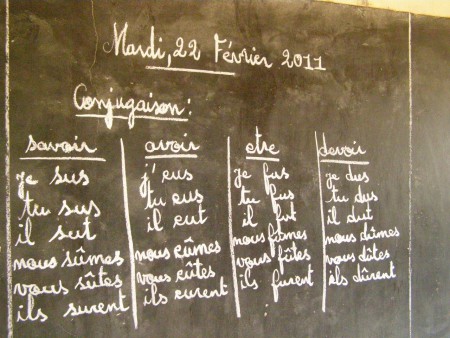 Mardi, 22 Février 2011
Conjugaison:
savoir
je sus
tu sus
il sut
nous sûmes
vous sûtes
ils surent
avoir
j'eus
tu eus
il eut
nous eûmes
vous eûtes
ils eurent
etre
je fus
tu fus
il fut
nous fûmes
vous fûtes
ils furent
devoir
je dus
tu dus
il dut
nous dûmes
vous dûtes
ils dûrent